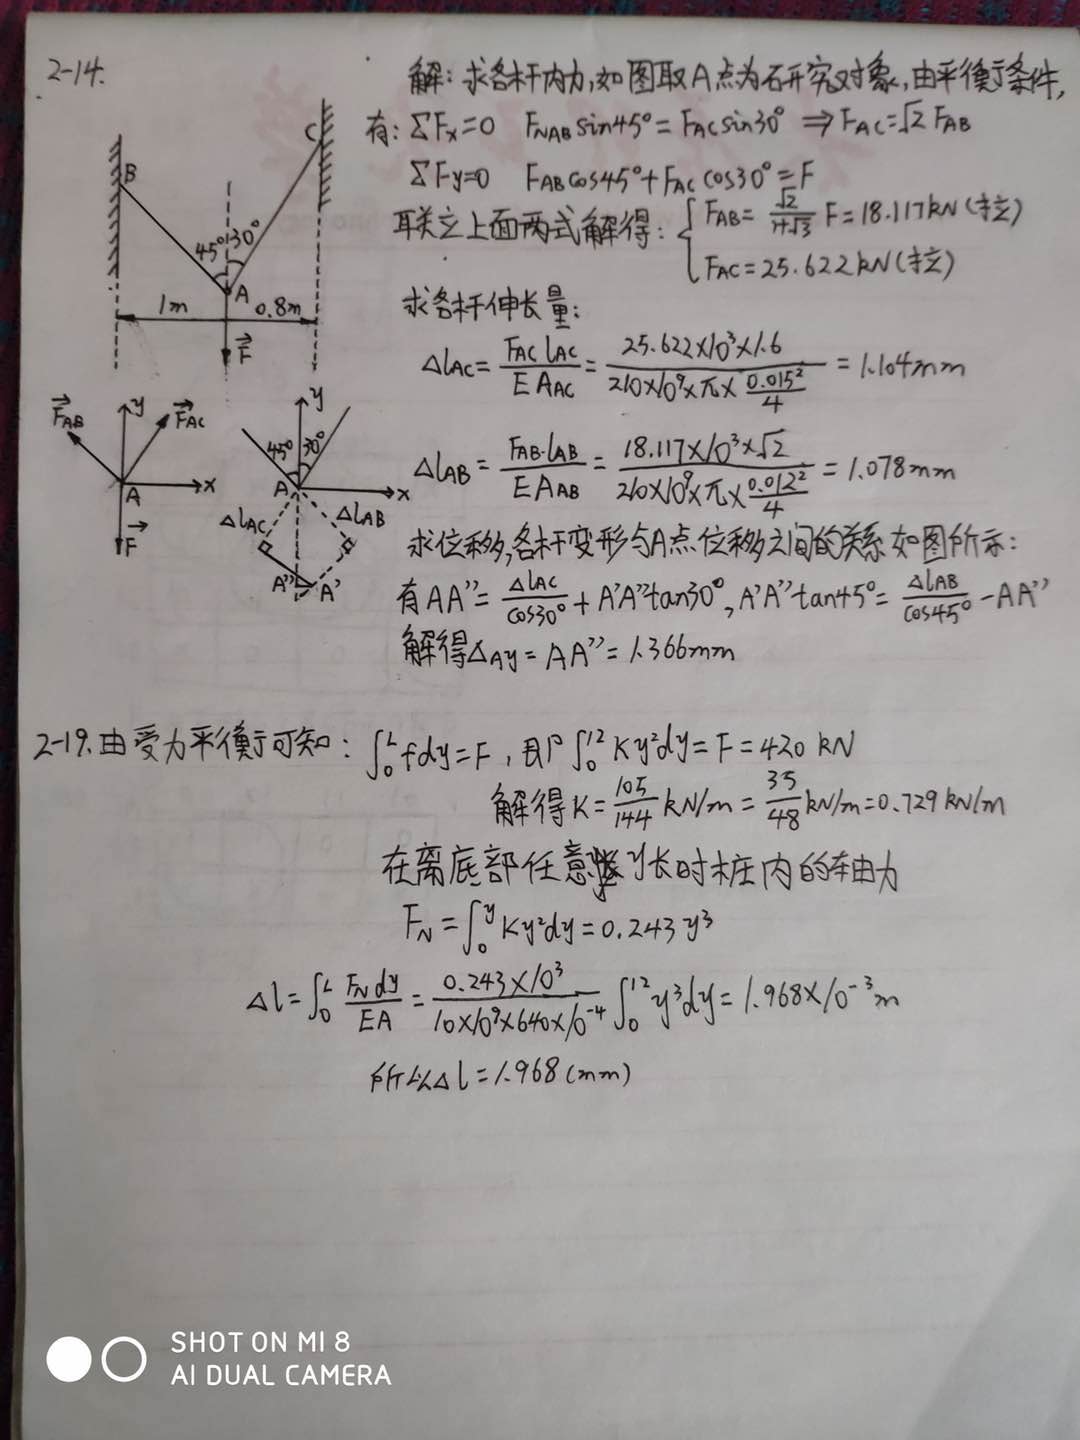 2-14.
解：求各杆内力，如图取A点为研究对象，由平衡条件，
有：ΣFx=0 FNAB sin45°=FAC sin30° ⇒ FAC=√2 FAB
ΣFy=0 FAB cos45°+FAC cos30°=F
联立上面两式解得：{FAB=√2/(1+√3) F=18.117kN(拉)
FAC=25.622kN(拉)
B
C
45° 30°
A
1m 0.8m
F
求各杆伸长量：
ΔlAC=FAC lAC/EAAC=25.622×10³×1.6/(210×10⁹×π×0.015²/4)=1.104mm
FAB y FAC
A x
F
y
45° 30°
A x
ΔlAC ΔlAB
A'' A'
ΔlAB=FAB·lAB/EAAB=18.117×10³×√2/(210×10⁹×π×0.012²/4)=1.078mm
求位移，各杆变形与A点位移之间的关系如图所示：
有AA''=ΔlAC/cos30°+A'A''tan30°, A'A''tan45°=ΔlAB/cos45°-AA''
解得ΔAy=AA''=1.366mm
2-19.由受力平衡可知：∫₀ᴸfdy=F，即∫₀¹²Ky²dy=F=420kN
解得K=105/144 kN/m=35/48 kN/m=0.729kN/m
在离底部任意y长时桩内的轴力
FN=∫₀ʸKy²dy=0.243y³
Δl=∫₀ᴸ FNdy/EA=0.243×10³/(10×10⁹×640×10⁻⁴) ∫₀¹²y³dy=1.968×10⁻³m
所以Δl=1.968(mm)
SHOT ON MI 8
AI DUAL CAMERA